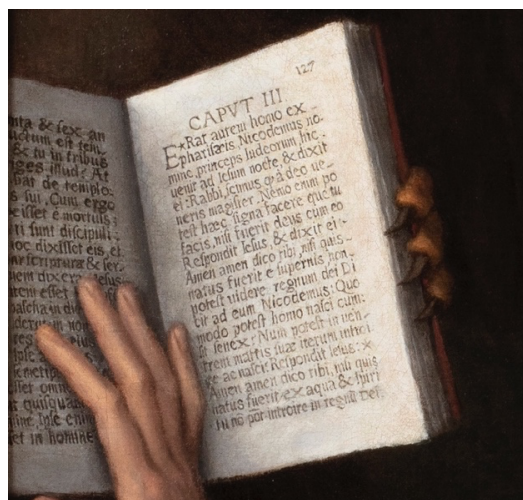 nta & sex an
uctum est tem
& tu in tribus
ges illud? At
bat de templo
s sui. Cum ergo
eisset e mortuis:
ri sunt discipuli
oc dixisset eis, et
scripturæ & ser
uem dixerat Iesus
tem esset
pascha in die
er quisquam
ine. Ipse enim
et in homine
127
CAPVT III
ERat autem homo ex
pharisæis, Nicodemus no-
mine, princeps Iudeorum, hic
uenit ad Iesum nocte & dixit
ei: Rabbi, scimus q̃a deo ue-
neris magister. Nemo enim po
test hæc signa facere quæ tu
facis, nisi fuerit deus cum eo
Respondit Iesus, & dixit ei:
Amen amen dico tibi, nisi quis
natus fuerit e supernis, non
potest uidere regnum dei Di
cit ad eum Nicodemus: Quo
modo potest homo nasci cum
sit senex? Num potest in uen-
trem matris suæ iterum introi
re ac nasci? Respondit Iesus:
Amen amen dico tibi, nisi quis
natus fuerit ex aqua & spiri
tu nõ pot introire in regnũ Dei.